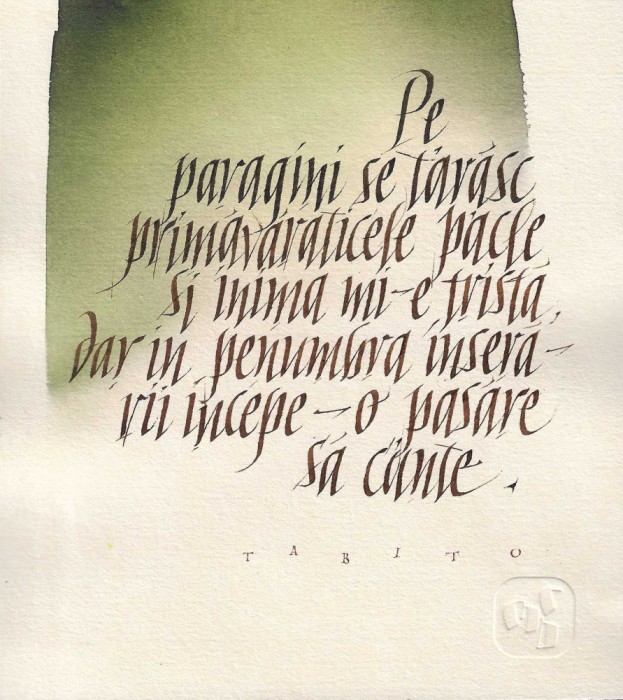 Pe
paragini se tărăsc
primăvăraticele pâcle
și inima mi-e tristă,
dar in penumbra inseră-
rii incepe-o pasăre
să cânte.
TABITO